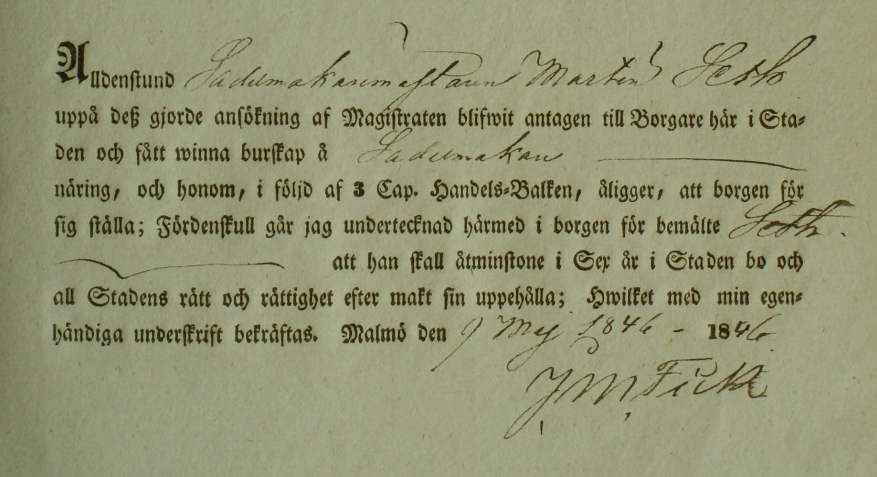 Alldenstund Sadelmakaremästaren Martin Seth
uppå deß gjorde ansökning af Magistraten blifwit antagen till Borgare här i Sta-
den och fått winna burskap å Sadelmakare
näring, och honom, i följd af 3 Cap. Handels-Balken, åligger, att borgen för
sig ställa; Fördenskull går jag undertecknad härmed i borgen för bemälte Seth.
att han skall åtminstone i Sex år i Staden bo och
all Stadens rätt och rättighet efter makt sin uppehålla; Hwilket med min egen-
händiga underskrift bekräftas. Malmö den 9 Maj 1846 - 1846